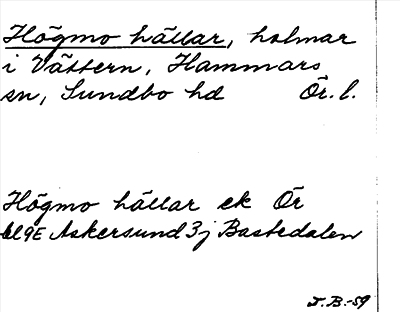 Högmo hällar, holmar
i Vättern, Hammars
sn, Sundbo hd Ör. l.
Högmo hällar ek Ör
bl 9E Askersund 3j Bastedalen
J.B.-59